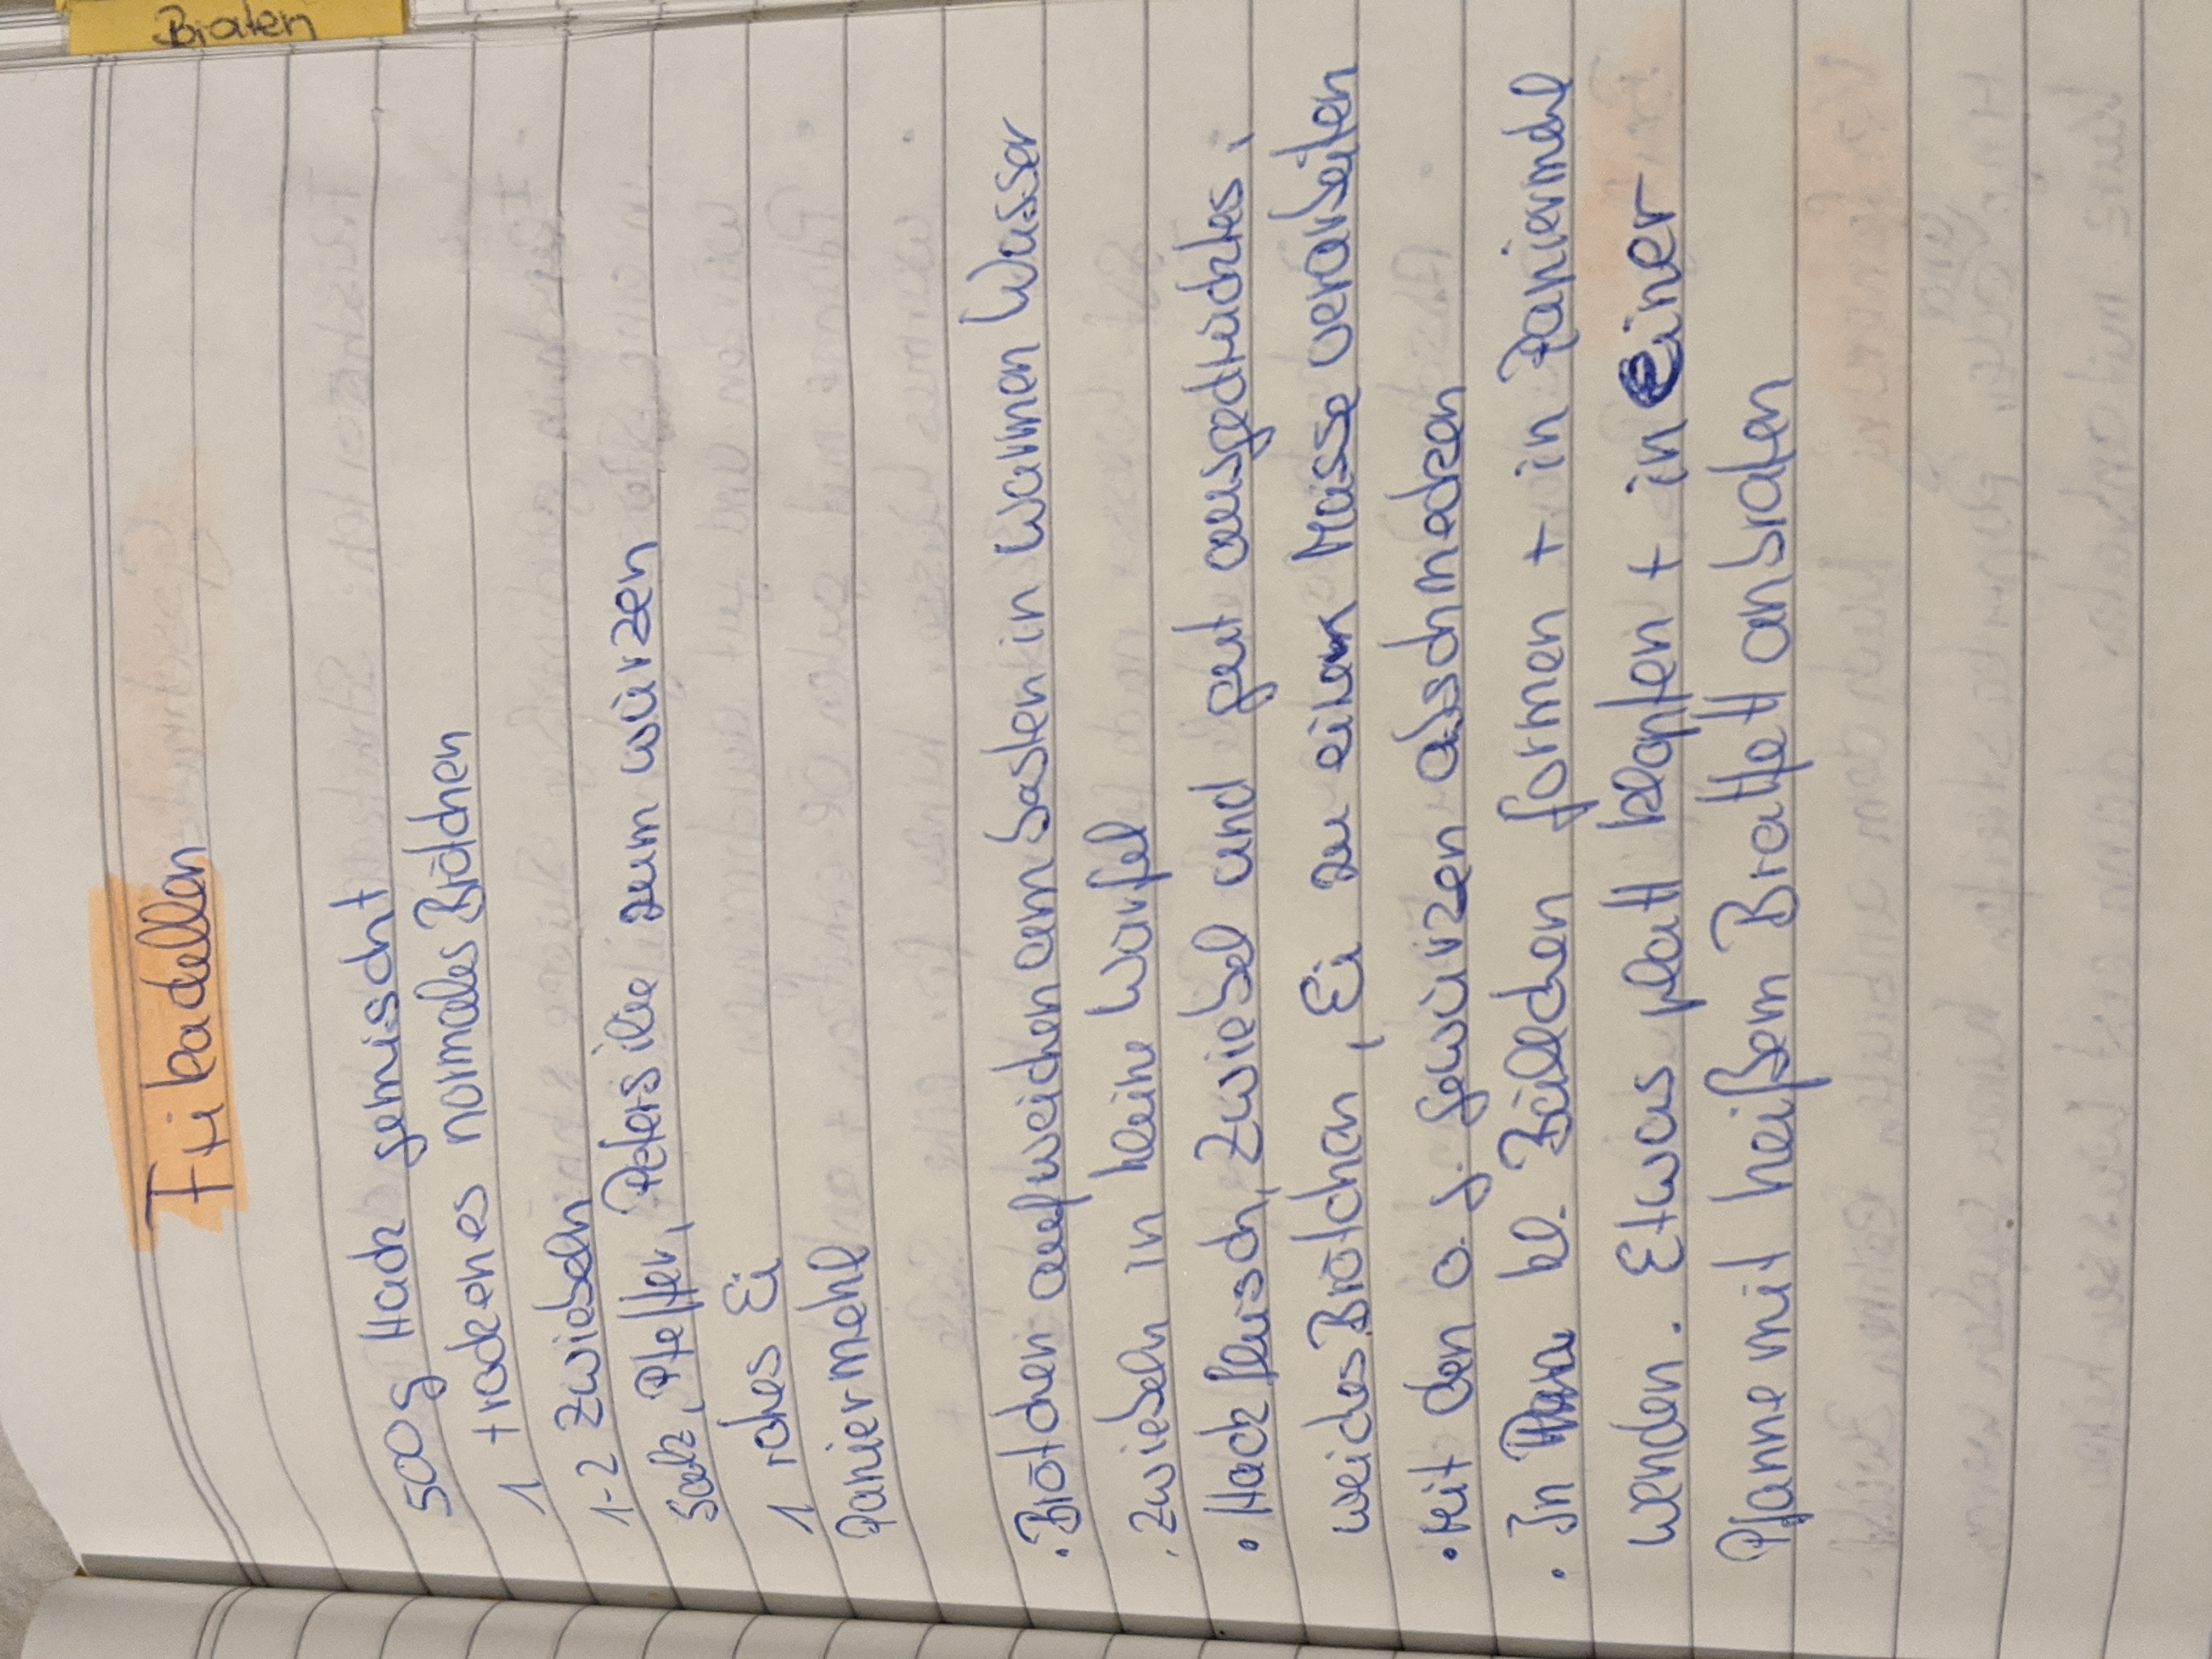 Braten
Frikadellen
500g Hack gemischt
1 trockenes normales Brötchen
1-2 Zwiebeln
Salz, Pfeffer, Petersilie zum würzen
1 rohes Ei
Paniermehl
· Brötchen aufweichen am besten in warmen Wasser
· Zwiebeln in kleine Würfel
· Hackfleisch, Zwiebel und gut ausgedrücktes,
weiches Brötchen, Ei zu einer Masse verarbeiten
· Mit den o. g. Gewürzen abschmecken
· In kl. Bällchen formen + in Paniermehl
wenden. Etwas platt klopfen + in einer
Pfanne mit heißem Bratfett anbraten